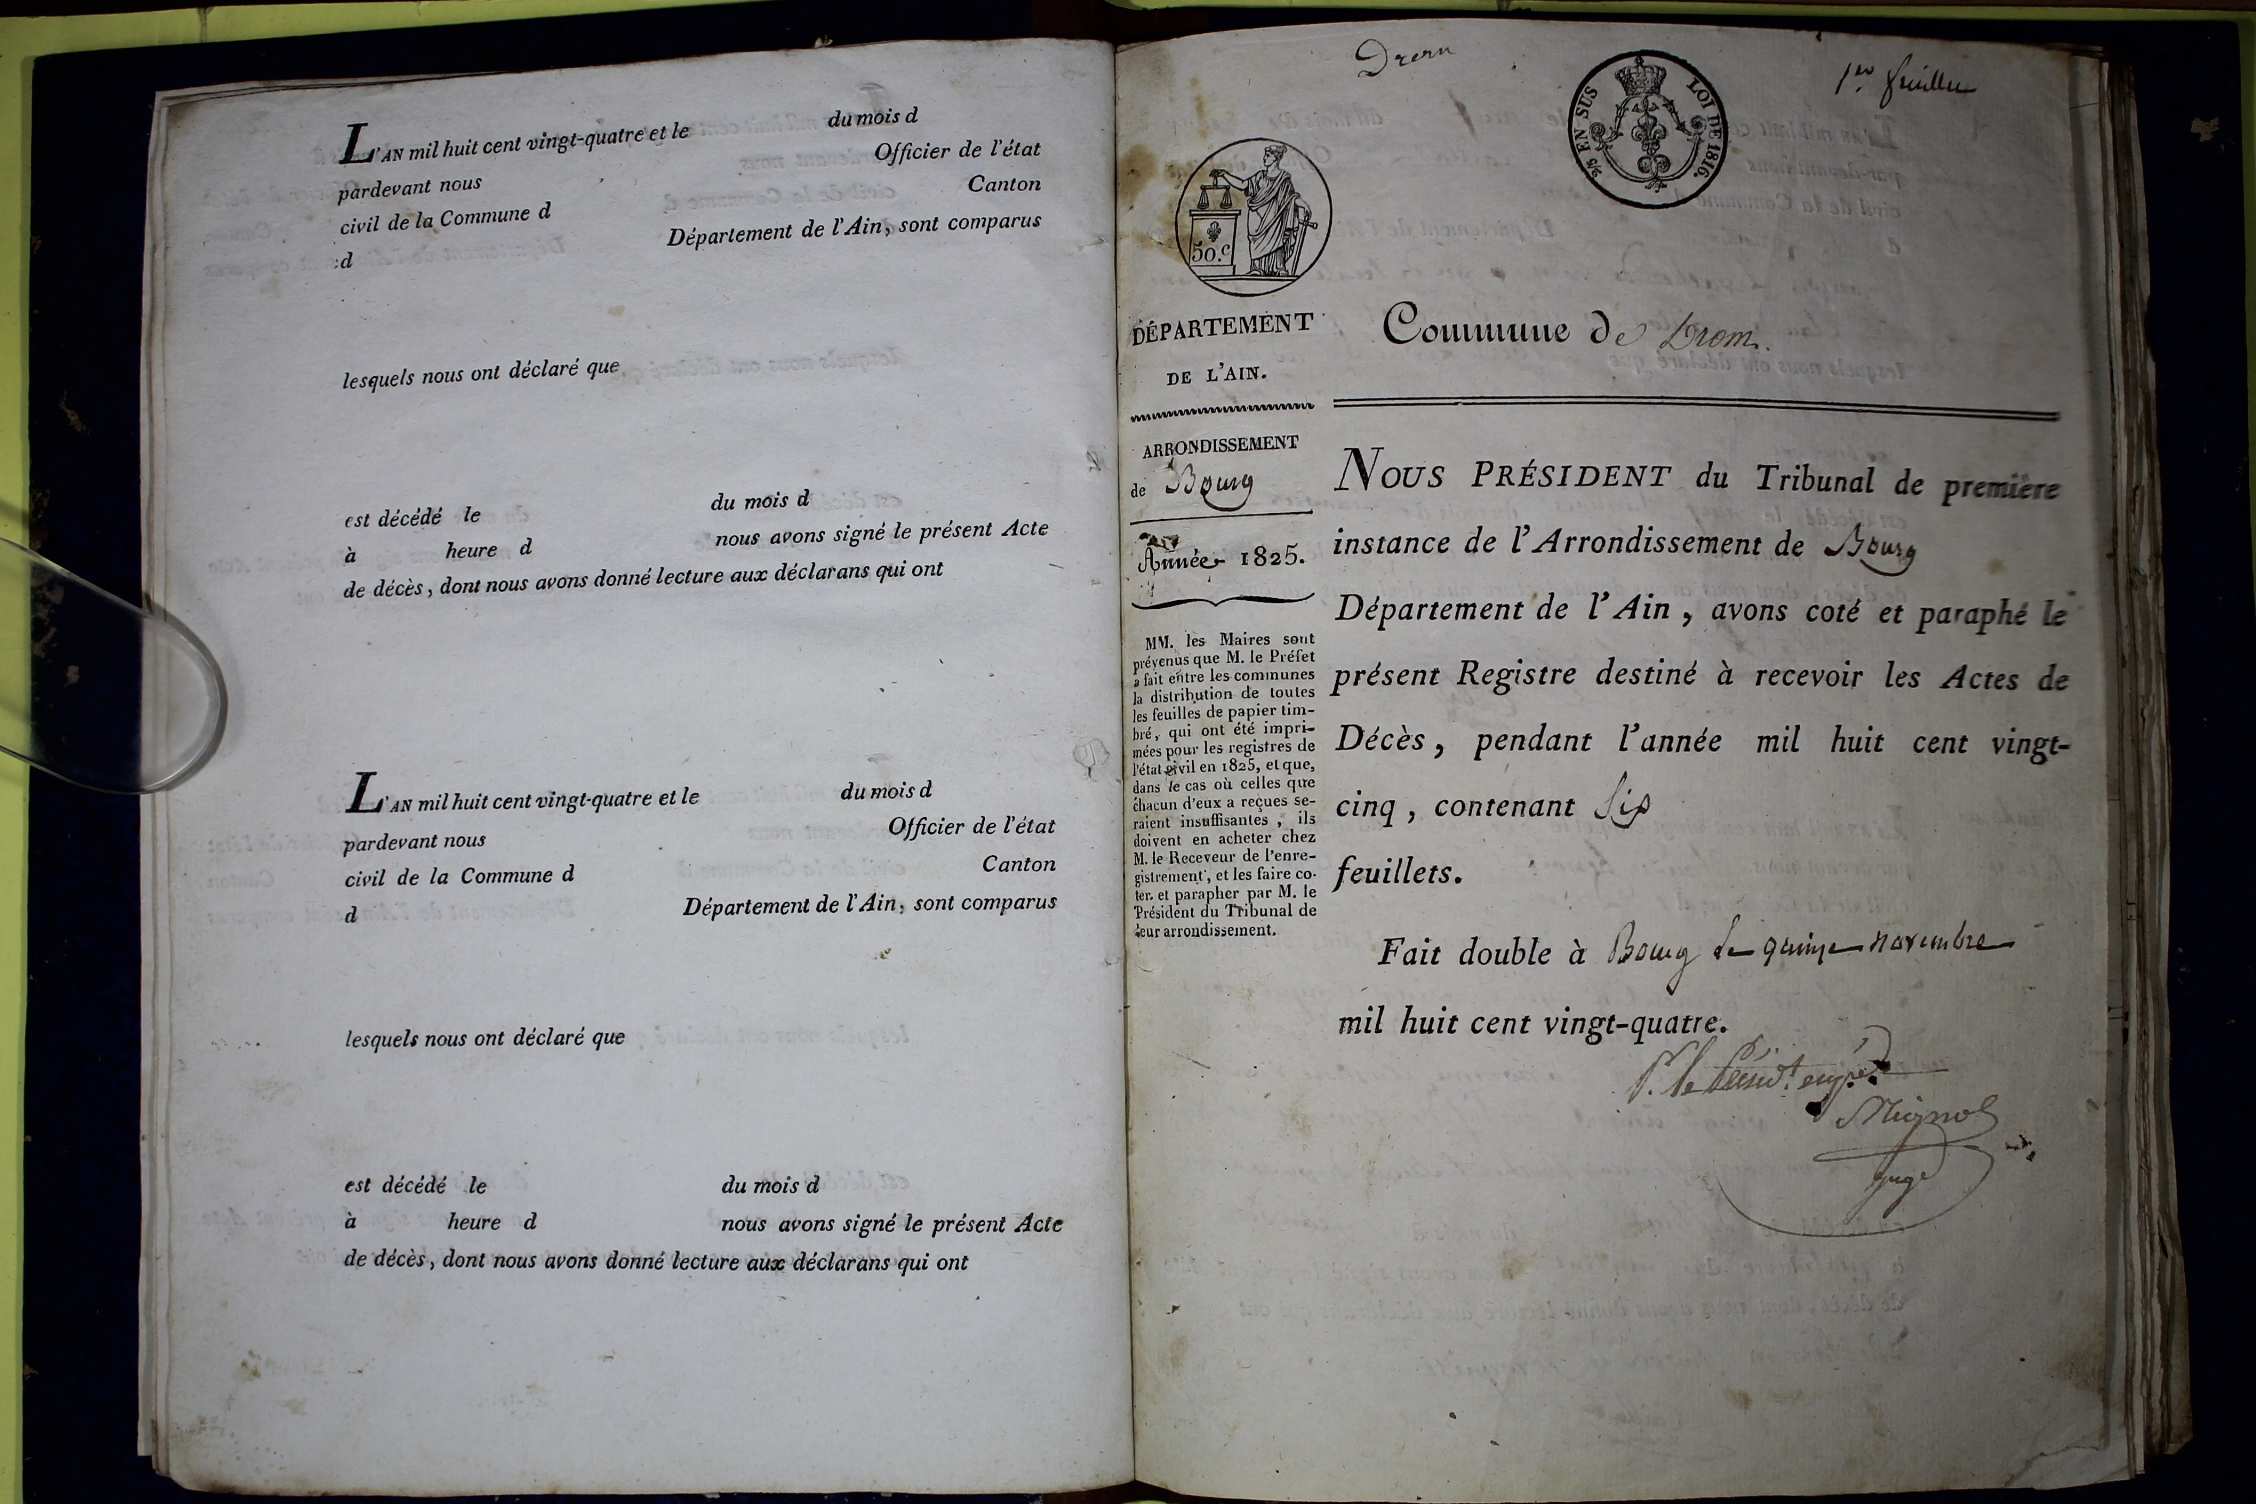 L'AN mil huit cent vingt-quatre et le du mois d
pardevant nous Officier de l'état
civil de la Commune d Canton
d Département de l'Ain, sont comparus
lesquels nous ont déclaré que
est décédé le du mois d
à heure d nous avons signé le présent Acte
de décès, dont nous avons donné lecture aux déclarans qui ont
L'AN mil huit cent vingt-quatre et le du mois d
pardevant nous Officier de l'état
civil de la Commune d Canton
d Département de l'Ain, sont comparus
lesquels nous ont déclaré que
est décédé le du mois d
à heure d nous avons signé le présent Acte
de décès, dont nous avons donné lecture aux déclarans qui ont
Drom
EN SUS LOI DE 1816.
1er feuillet
50.c
DÉPARTEMENT
DE L'AIN.
ARRONDISSEMENT
de Bourg
Année 1825.
MM. les Maires sont
prévenus que M. le Préfet
a fait entre les communes
la distribution de toutes
les feuilles de papier tim-
bré, qui ont été impri-
mées pour les registres de
l'état civil en 1825, et que,
dans le cas où celles que
chacun d'eux a reçues se-
raient insuffisantes, ils
doivent en acheter chez
M. le Receveur de l'enre-
gistrement, et les faire co-
ter et parapher par M. le
Président du Tribunal de
leur arrondissement.
Commune de Drom.
NOUS PRÉSIDENT du Tribunal de première
instance de l'Arrondissement de Bourg
Département de l'Ain, avons coté et paraphé le
présent Registre destiné à recevoir les Actes de
Décès, pendant l'année mil huit cent vingt-
cinq, contenant Six
feuillets.
Fait double à Bourg le quinze novembre
mil huit cent vingt-quatre.
P. le Présid.t emp.é
Mignol
juge